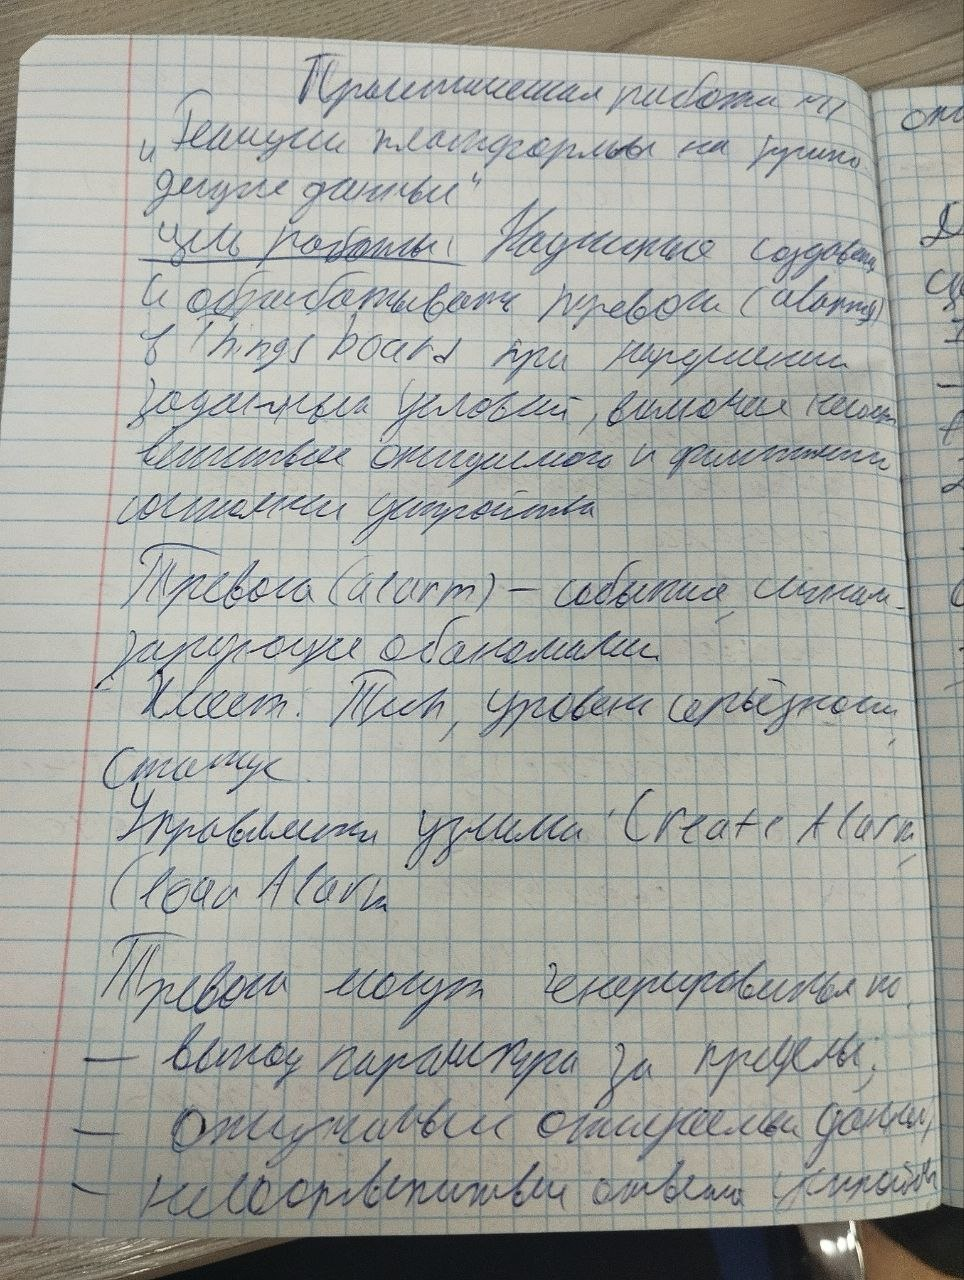 Практическая работа №11
"Реакции платформы на прихо
дящие данные"
Цель работы: Научиться создавать
и обрабатывать тревоги (alarms)
в Things board при нарушении
заданных условий, включая несоот
ветствие ожидаемого и фактического
состояния устройства
Тревога (alarm) – событие, сигнали-
зирующее об аномалии
Имеет: Тип, уровень серьёзности,
Статус
Управляется узлами: Create Alarm,
Clear Alarm
Тревоги могут генерироваться по
— выход параметра за пределы;
— ожидаемых данных,
— несоответствие ответа устройства